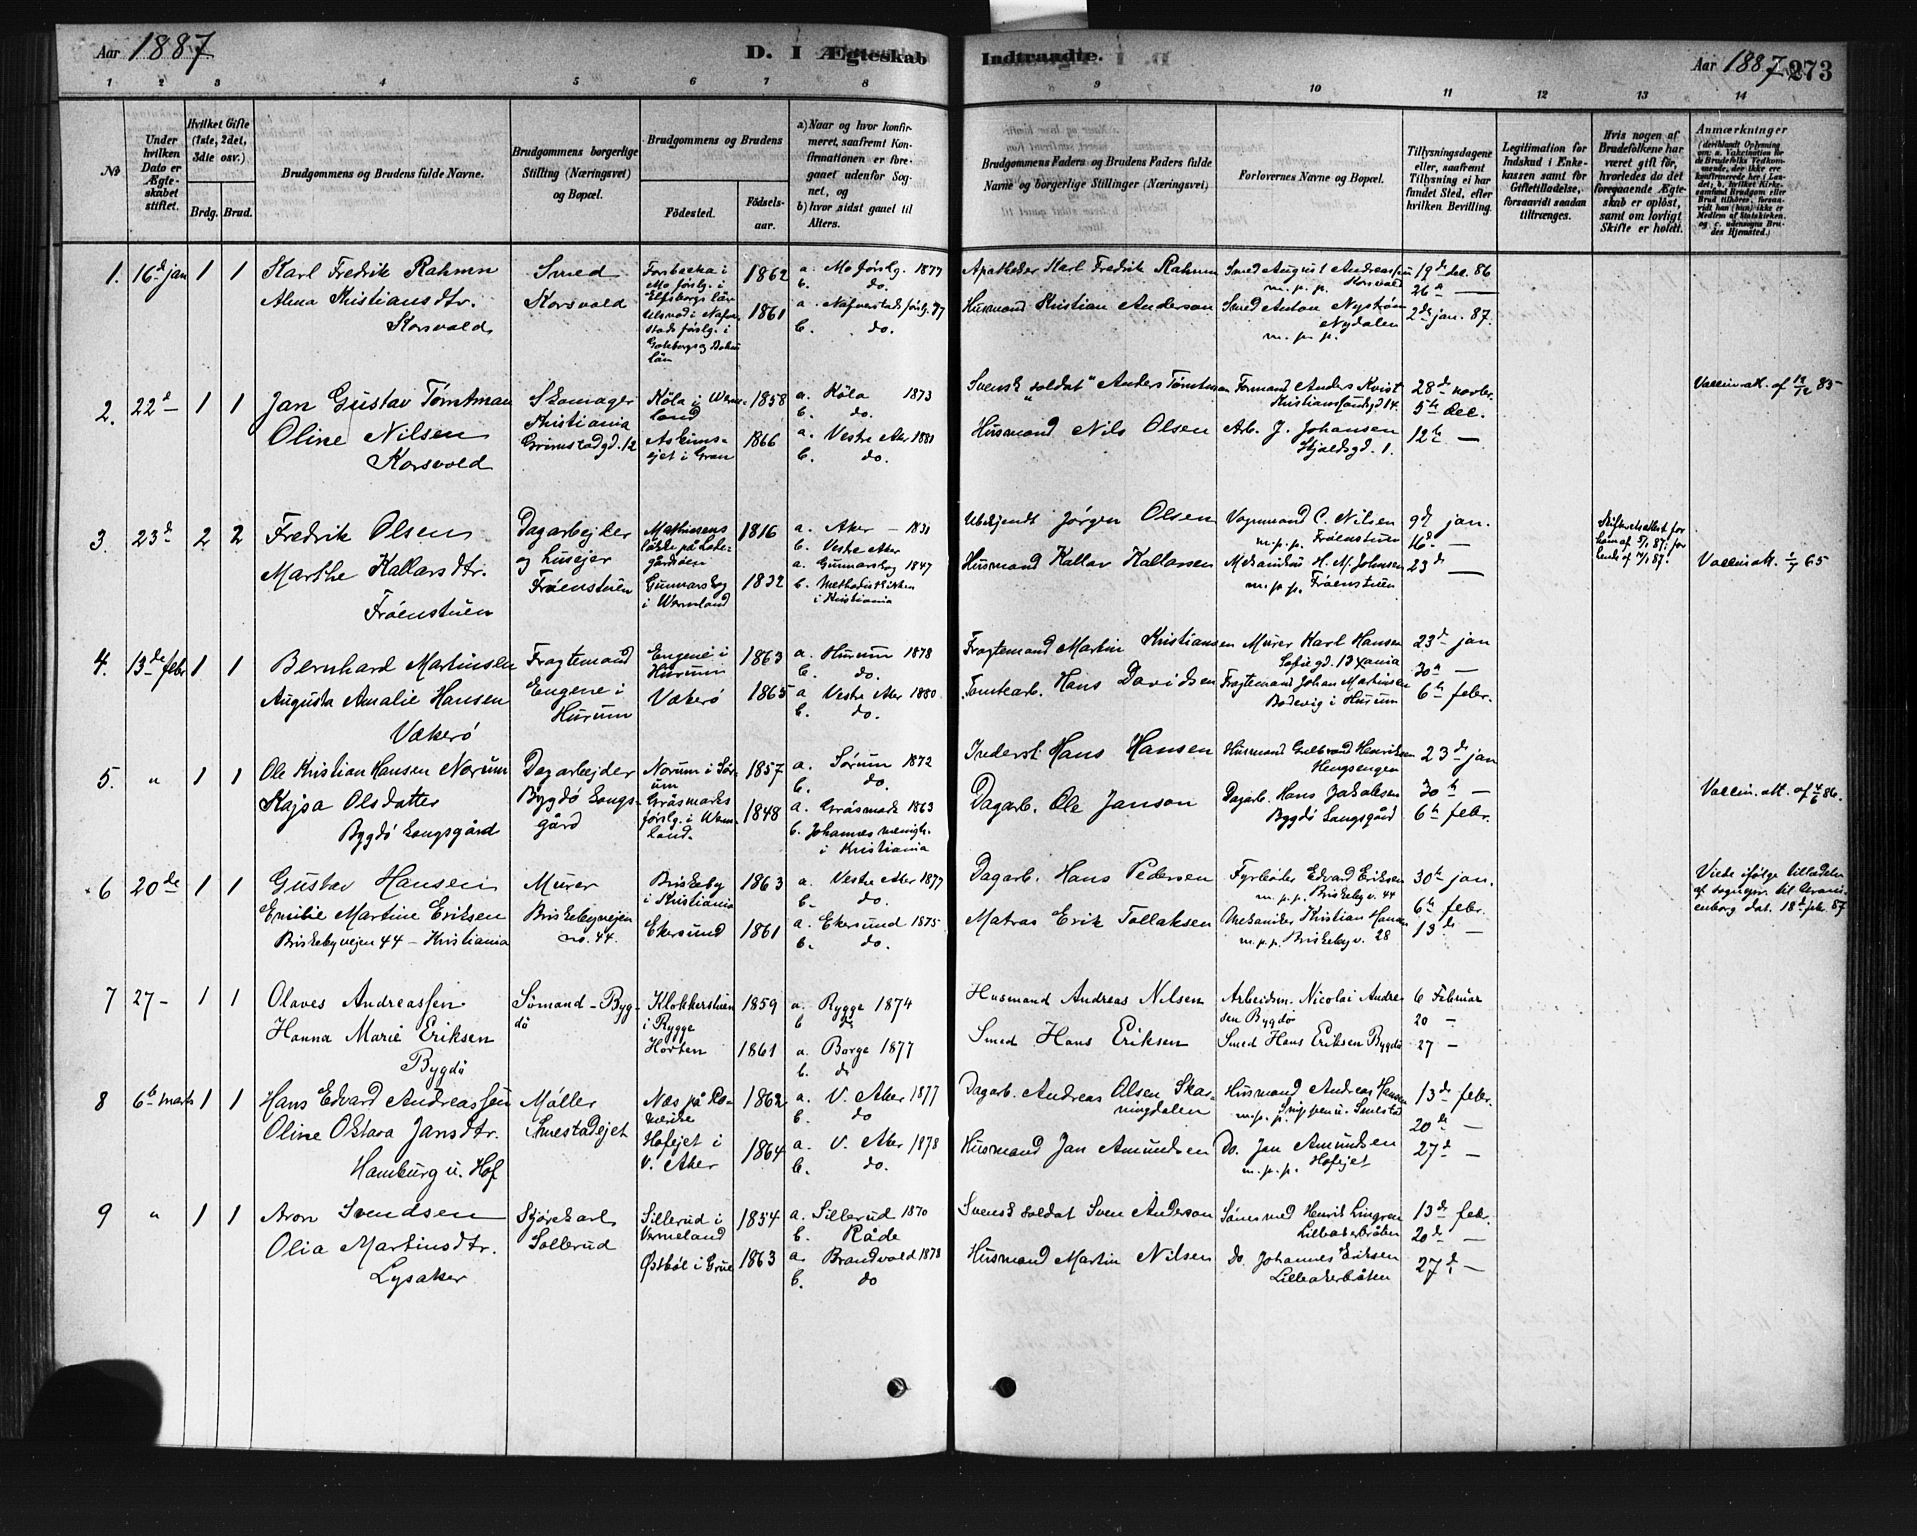 Aar 1887
D. I Ægteskab
Indtraadte.
Aar 1887
273
1 2 3 4 5 6 7 8 9 10 11 12 13 14
No
Under hvilken Dato er Ægteskabet stiftet.
Hvilket Gifte (1ste, 2det, 3die osv.)
Brdg. Brud.
Brudgommens og Brudens fulde Navne.
Brudgommens borgerlige Stilling (Næringsvei) og Bopæl.
Brudgommens og Brudens
Födested.
Födselsaar.
a) Naar og hvor konfirmeret, saafremt Konfirmationen er foregaaet udenfor Sognet, og
b) hvor sidst gaaet til Alters.
Brudgommens Faders og Brudens Faders fulde Navne og borgerlige Stillinger (Næringsvei)
Forlovernes Navne og Bopæl.
Tillysningsdagene eller, saafremt Tillysning ei har fundet Sted, efter hvilken Bevilling.
Legitimation for Indskud i Enkekassen samt for Giftetilladelse, forsaavidt saadan tiltrænges.
Hvis nogen af Brudefolkene har været gift för, hvorledes da det foregaaende Ægteskab er oplöst, samt om lovligt Skifte er holdt.
Anmærkninger
1. 16d jan 1 1
Karl Fredrik Rahmn
Alma Kristiansdtr.
Korsvold
Smed
Korsvold
Forsbacka i
Mo förslg. i
Elfsborgs län
1862
1861
a. Mo förslg. 1877
b. do.
a. Nafverstads förslg. 77
b. do.
Apotheker Karl Fredrik Rahmn
Husmand Kristian Anderson
Smed August Andreassen
m.p.p. Korsvold
Smed Anton Nyström
Nydalen
m.p.p.
19de dec. 86
26d —
2de jan. 87.
2. 22d — 1 1
Jan Gustav Tømtman
Oline Nilsen
Korsvold
Skomager
Kristiania
Grimstadgd. 12
Köla i Wermland
Askimsejet i Gran
1858
1866
a. Köla 1873
b. do.
a. Vestre Aker 1881
b. do.
Svensk "soldat" Anders Tømtman
Husmand Nils Olsen
Formand Anders Kvist
Kristiansundsgd 14.
Arb. J. Johansen
Skjoldsgd. 1.
28de novbr.
5te dec.
12te —
3. 23d 2 2
Fredrik Olsen
Marthe Kallarsdtr.
Frøenstuen
Dagarbejder
og husejer
Frøenstuen
Mathiesens
løkke på Ladegårdsøen
Gunnarskog
i Wermland
1816
1832
a. Aker — 1831
b. Vestre Aker
a. Gunnarskog 1847
b. Methodistkirken
i Kristiania
Ubekjendt Jørgen Olsen
Husmand Kallar Kallarsen
Vognmand C. Nilsen
m.p.p. Frøenstuen
Mekanikus H. M. Johnsen
m.p.p. Frøenstuen
9d jan.
16d —
23d —
4. 13de febr 1 1
Bernhard Martinsen
Augusta Amalie Hansen
Vækerø
Fragtemand
Engene i
Hurum
Engene i
Hurum
Vækerø
1863
1865
a. Hurum 1878
b. do.
a Vestre Aker 1880
b. do.
Fragtemand Martin Kristiansen
Tomtearb. Hans Davidsen
Murer Karl Hansen
Sofiegd. 13 Xania
Fragtemand Johan Martinsen
Bødevig i Hurum
23d jan
30te —
6te febr.
5. " 1 1
Ole Kristian Hansen Norum
Kajsa Olsdatter
Bygdø Kongsgård
Dagarbejder
Bygdø Kongsgård
Norum i Sørum
Gräsmarks
förslg. i Wermland.
1857
1848
a. Sørum 1872
b. do.
a. Gräsmark 1863
b. Johannes menigh.
i Kristiania
Inderst Hans Hansen
Dagarb. Ole Janson
Husmand Gulbrand Henriksen
Hengsengen
Dagarb. Hans Jakobsen
Bygdø Kongsgård
23de jan
30te —
6te febr.
6 20de 1 1
Gustav Hansen
Emilie Martine Eriksen
Briskebyvejen 44 — Kristiania
Murer
Briskebyvejen
no. 44.
Briskeby
i Kristiania
Ekersund
1863
1861
a. Vestre Aker 1877
b. do.
a. Ekersund 1875
b. do.
Dagarb. Hans Pedersen
Matros Erik Tollaksen
Fyrbøder Edvard Eriksen
m.p.p. Briskebyv. 44
Mekaniker Kristian Hansen
m.p.p. Briskebyv. 28
30te jan.
6te febr.
13de —
7 27 — 1 1
Olaves Andreassen
Hanna Marie Eriksen
Bygdø
Sømand — Bygdö
Klokkerstuen
i Rygge
Horten
1859
1861
a. Rygge 1874
b do
a. Borge 1877
b. do
Husmand Andreas Nilsen
Smed Hans Eriksen
Arbeidsm. Nicolai Andresen Bygdø
Smed Hans Eriksen Bygdø
6 Februar
20 —
27 —
8 6te marts 1 1
Hans Edvard Andreassen
Oline Oktava Jansdtr.
Hamburg u. Hof
Møller
Smestadejet
Næs på Romerike
Hofejet i
V. Aker
1862
1864
a. V. Aker 1877
b. do
a. V. Aker 1878
b. do.
Dagarb. Andreas Olsen Skarningdalen
Husmand Jan Amundsen
Husmand Andreas Hansen
m.p.p. Snippen u. Smestad
Do. Jan Amundsen
m.p.p. Hofejet
13de febr.
20de —
27d —
9 " 1 1
Aron Svendsen
Olia Martinsdtr.
Lysaker
Kjørekarl
Sollerud
Sillerud i
Vermeland
Østbøl i Grue
1854
1863
a. Sillerud 1870
b. Råde
a. Brandvold 1878
b. do
Svensk soldat Sven Anderson
Husmand Martin Nilsen
Sømsmed Henrik Lingren
Lilleakerbråten
Do. Johannes Eriksen
Lilleakerbråten
13de feb.
20de —
27de —